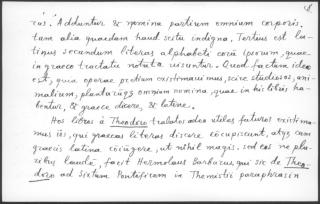 rās. Adduntur & nomina partium omnium corporis,
tam alia quaedam haud scitu indigna. Tertius est la-
tinus secundum literas alphabeti coriā ipsorum, quae
in graeco tractatu notata visuntur. Quod factum ideo
est, quia operae pretium existimavimus, scire studiosos, ani-
malium, plantarūq; omnium nomina, quae in hic libris ha-
bentur, & graece dicere, & latine.
Hos libros à Theodoro tralatos adeo utiles futuros existima-
mus iis, qui graecas literas discere concupiscunt, atq; eam
graecis latina coiūgere, ut nihil magis. sed eos ne plu-
ribus laudē, facit Hermolaus Barbarus, qui sic de Theo-
doro ad Sixtum Pontificem in Themistii paraphrasin